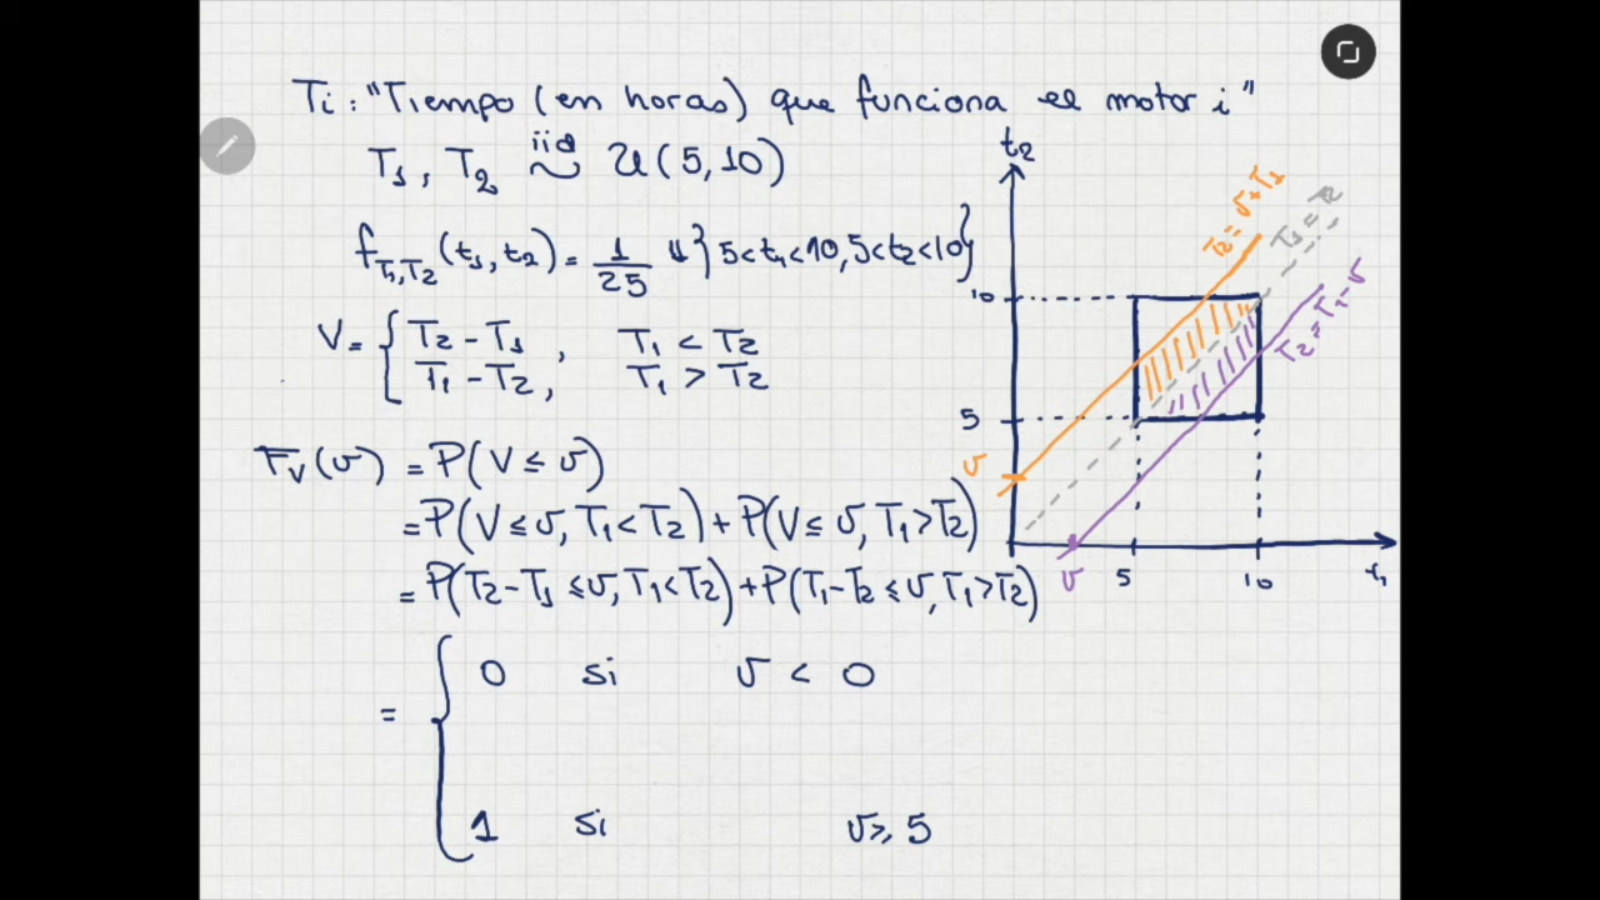 Ti: "Tiempo (en horas) que funciona el motor i"
T₁, T₂ iid ~ U(5,10)
f_{T₁,T₂}(t₁,t₂) = 1/25 1{5<t₁<10, 5<t₂<10}
V = { T₂ - T₁ , T₁ < T₂
T₁ - T₂ , T₁ > T₂
F_V(v) = P(V ≤ v)
= P(V ≤ v, T₁<T₂) + P(V ≤ v, T₁>T₂)
= P(T₂-T₁ ≤ v, T₁<T₂) + P(T₁-T₂ ≤ v, T₁>T₂)
= { 0 si v < 0
1 si v ≥ 5
t₂
T₂ = v+T₁
T₁ = T₂
T₂ = T₁-v
10
5
v
v
5
10
t₁